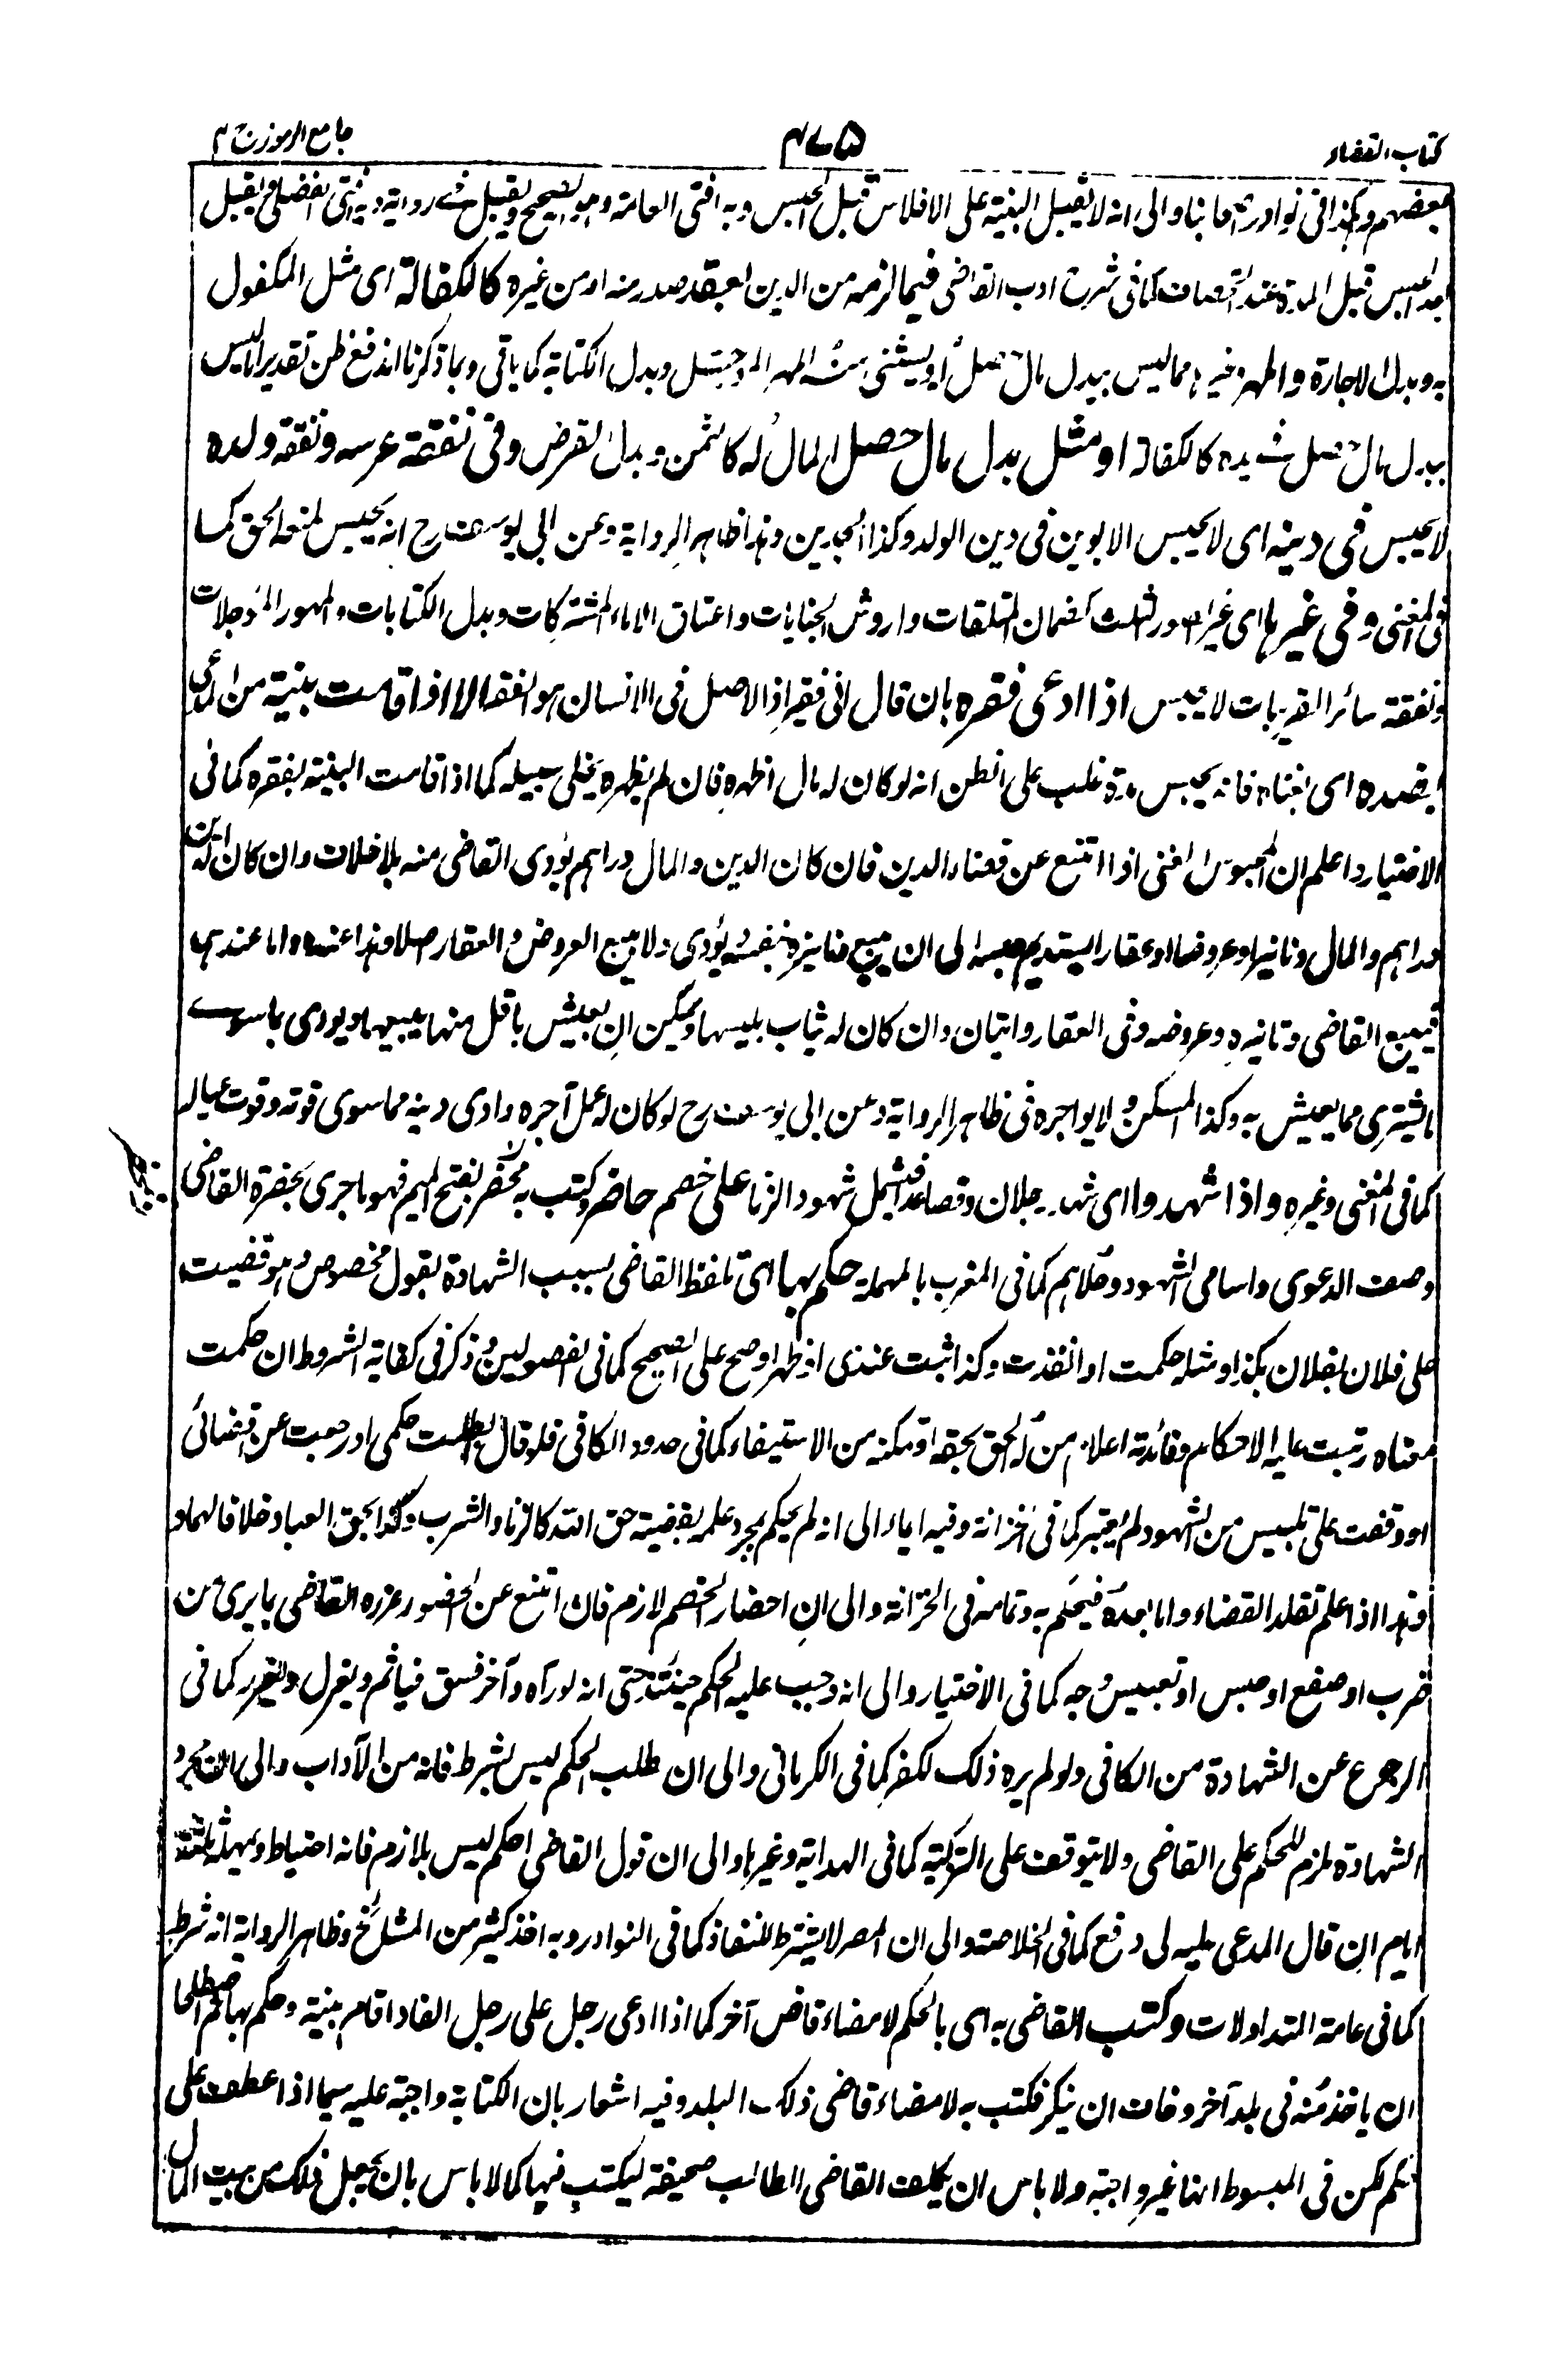 كتاب القضاء
٤٧٥
جامع الرموز ج ٣
بعضهم وهكذا فى نوادر اصحابنا والى انه لا تقبل البينة على الافلاس قبل الحبس وبه افتى العامة وهو الصحيح وتقبل فى رواية وبه افتى الفضلى ويقبل
بعد الحبس قبل المدة عند الخصاف كما فى شرح ادب القاضى فيما لزمه من الدين بعقد صدر منه او من غيره كالكفالة اى مثل المكفول
به وبدل الاجارة والمهر وغيره مما ليس ببدل مال حصل له ويستثنى منه المهر المؤجل وبدل الكتابة كما ياتى وبما ذكرنا اندفع ظن تقدير ما ليس
ببدل مال حصل فى يده كالكفالة او مثل بدل مال حصل المال له كالثمن وبدل القرض وفى نفقة عرسه ونفقة ولده
لا يحبس فى دينه اى لا يحبس الابوين فى دين الولد وكذا الجدين وهذا ظاهر الرواية وعن ابى يوسف رح انه يحبس لمنعه الحق كما
فى المغنى وفى غيرها اى غير الامور الثلث كضمان المتلفات واروش الجنايات واعتاق الاماء المشتركات وبدل الكتابات والمهور المؤجلات
ونفقة سائر القريبات لا يحبس اذا ادعى فقره بان قال انى فقير اذ الاصل فى الانسان هو الفقر الا اذا قامت بينة من المدعى
بضده اى بغناه فانه يحبس مدة غلب على الظن انه لو كان له مال اظهره فان لم يظهره يخلى سبيله كما اذا قامت البينة بفقره كما فى
الاختيار واعلم ان المحبوس الغنى اذا امتنع عن قضاء الدين فان كان الدين والمال دراهم يؤدى القاضى منه بلا خلاف وان كان الدين
دراهم والمال دنانير او عروضا او عقارا يستديم حبسه الى ان يبيع دنانيره بنفسه ويؤدى ولا يبيع العروض والعقار اصلا وهذا عنده واما عندهما
فيبيع القاضى دنانيره وعروضه وفى العقار روايتان وان كان له ثياب يلبسها ويمكن ان يعيش باقل منها يبيعها ويودى ما سوى
ما يشترى مما يعيش به وكذا المسكن ولا يواجره فى ظاهر الرواية وعن ابى يوسف رح لو كان له عمل آجره وادى دينه مما سوى قوته وقوت عياله
كما فى المغنى وغيره واذا شهدوا اى شهد رجلان فصاعدا فيشمل شهود الزنا على خصم حاضر وكتب به محضر بفتح الميم فهو ما جرى بحضرة القاضى
وصف الدعوى واسامى الشهود وحلاهم كما فى المغرب بالمهملة حكم بها اى تلفظ القاضى بسبب الشهادة بقول مخصوص هو قضيت
على فلان لفلان بكذا ومثله حكمت او انفذت وكذا ثبت عندى او ظهر او صح على الصحيح كما فى الفصولين وذكر فى كفاية الشروط ان حكمت
معناه رتبت عليه الاحكام وفائدته اعلام من له الحق بحقه او تمكنه من الاستيفاء كما فى حدود الكافى فلو قال ابطلت حكمى او رجعت عن قضائى
او وقفت على تلبيس من الشهود لم يعتبر كما فى الخزانة وفيه ايماء الى انه لم يحكم بمجرد علمه بقضية حق الله كالزنا والشرب وكذا بحق العباد خلافا لهما و
هذا اذا علم تقلد القضاء واما بعده فيحكم به وتمامه فى الخزانة والى ان احضار الخصم لازم فان امتنع عن الحضور عزره القاضى بما يرى من
ضرب او صفع او حبس او تعبيس وجه كما فى الاختيار والى انه وجب عليه الحكم حينئذ حتى انه لو رآه وآخر فسق فياثم ويعزل ويعزر كما فى
الرجوع عن الشهادة من الكافى ولو لم يره ذلك لكفر كما فى الكرمانى والى ان طلب الحكم ليس بشرط فانه من الآداب والى ان مجرد
الشهادة ملزم للحكم على القاضى ولا يتوقف على التزكية كما فى الهداية وغيرها والى ان قول القاضى احكم ليس بلازم فانه احتياط ويمهله ثلثة
ايام ان قال المدعى عليه لى دفع كما فى الخلاصة والى ان المصر لا يشترط للنفاذ كما فى النوادر وبه اخذ كثير من المشائخ وظاهر الرواية انه شرط
كما فى عامة المتداولات وكتب القاضى به اى بالحكم لامضاء قاض آخر كما اذا ادعى رجل على رجل الفا واقام بينة وحكم بها ثم اصطلحا
ان ياخذ منه فى بلد آخر وخاف ان ينكر فكتب به لامضاء قاضى ذلك البلد وفيه اشعار بان الكتابة واجبة عليه سيما اذا عطف على
حكم لكن فى المبسوط انها غير واجبة ولا باس ان يكلف القاضى الطالب صحيفة ليكتب فيها كما لا باس بان يجعل ذلك من بيت المال